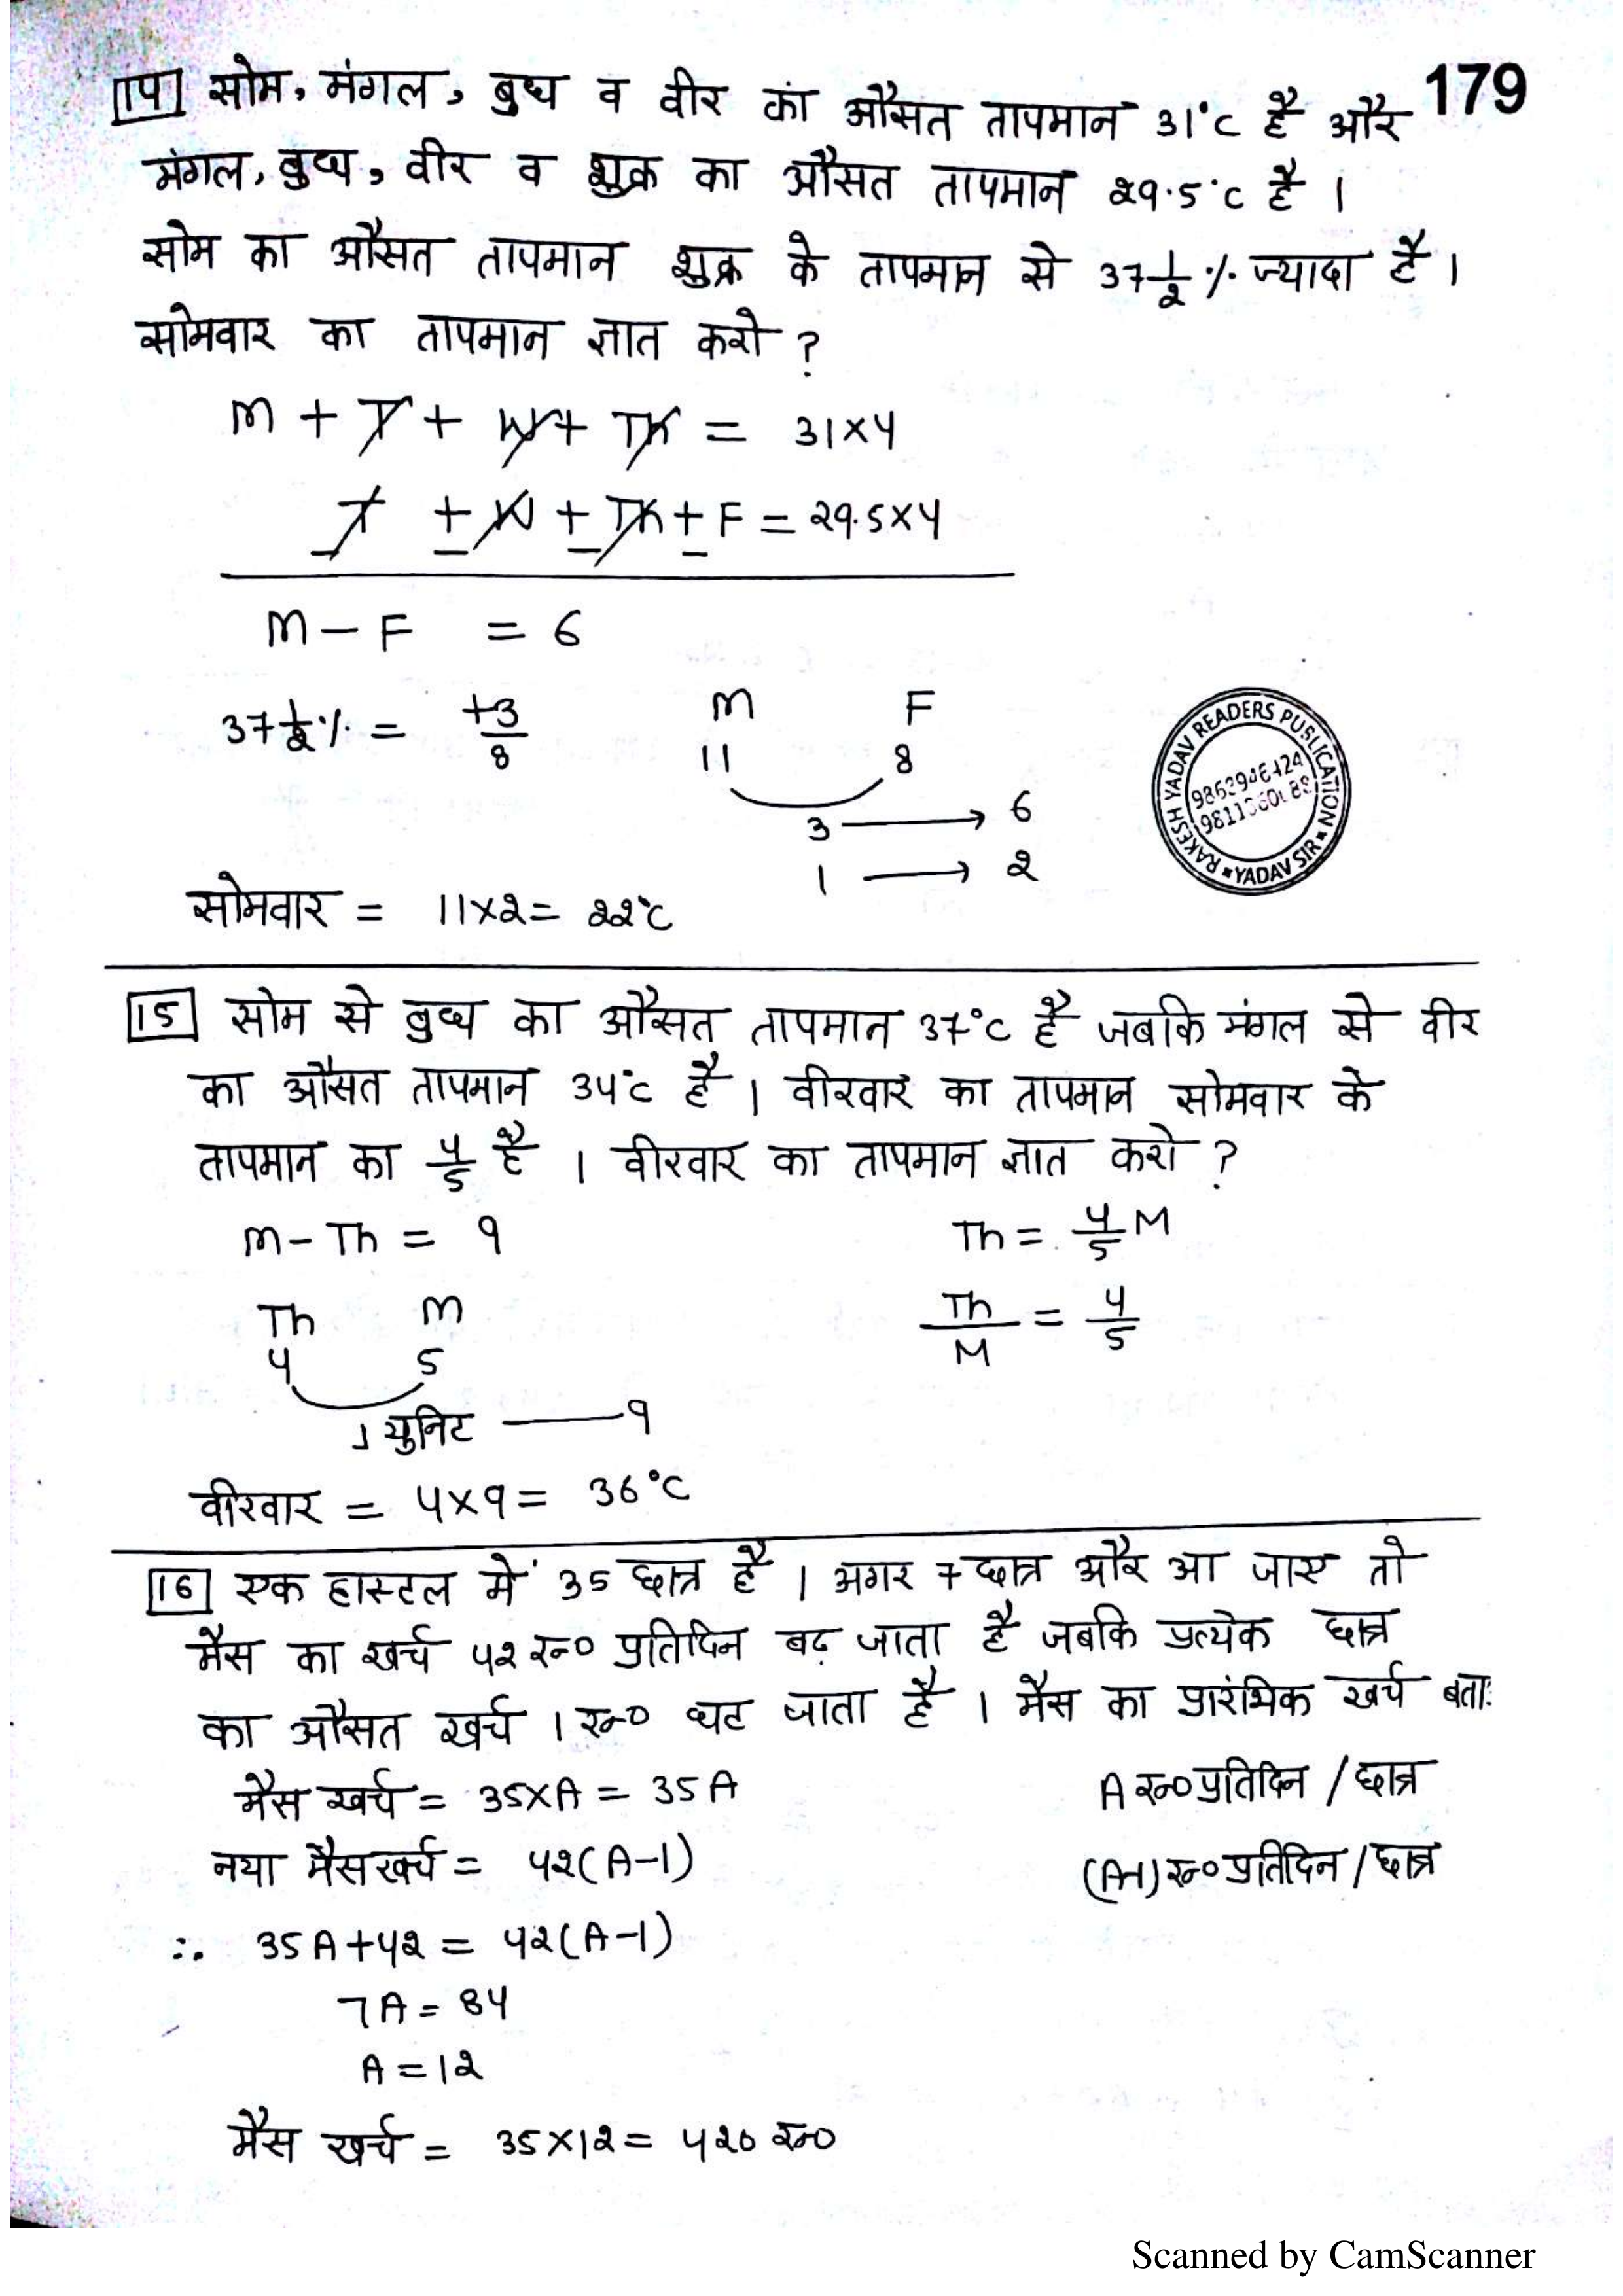 179
14 सोम, मंगल, बुध व वीर का औसत तापमान 31°C है और
मंगल, बुध, वीर व शुक्र का औसत तापमान 29.5°C है ।
सोम का औसत तापमान शुक्र के तापमान से 37 1/2 % ज्यादा है ।
सोमवार का तापमान ज्ञात करो ?
M + T + W + Th = 31×4
T ± W ± Th ± F = 29.5×4
M – F = 6
37 1/2 % = +3/8
M F
11 8
3 → 6
1 → 2
सोमवार = 11×2 = 22°C
RAKESH YADAV READERS PUBLICATION
YADAV SIR
15 सोम से बुध का औसत तापमान 37°C है जबकि मंगल से वीर
का औसत तापमान 34°C है । वीरवार का तापमान सोमवार के
तापमान का 4/5 है । वीरवार का तापमान ज्ञात करो ?
M – Th = 9 Th = 4/5 M
Th M Th/M = 4/5
4 5
1 युनिट — 9
वीरवार = 4×9 = 36°C
16 एक हास्टल में 35 छात्र है । अगर 7 छात्र और आ जाए तो
मैस का खर्च 42 रु० प्रतिदिन बढ़ जाता है जबकि प्रत्येक छात्र
का औसत खर्च 1 रु० घट जाता है । मैस का प्रारंभिक खर्च बता:
मैस खर्च = 35×A = 35A A रु० प्रतिदिन / छात्र
नया मैस खर्च = 42(A–1) (A–1) रु० प्रतिदिन / छात्र
∴ 35A+42 = 42(A–1)
7A = 84
A = 12
मैस खर्च = 35×12 = 420 रु०
Scanned by CamScanner